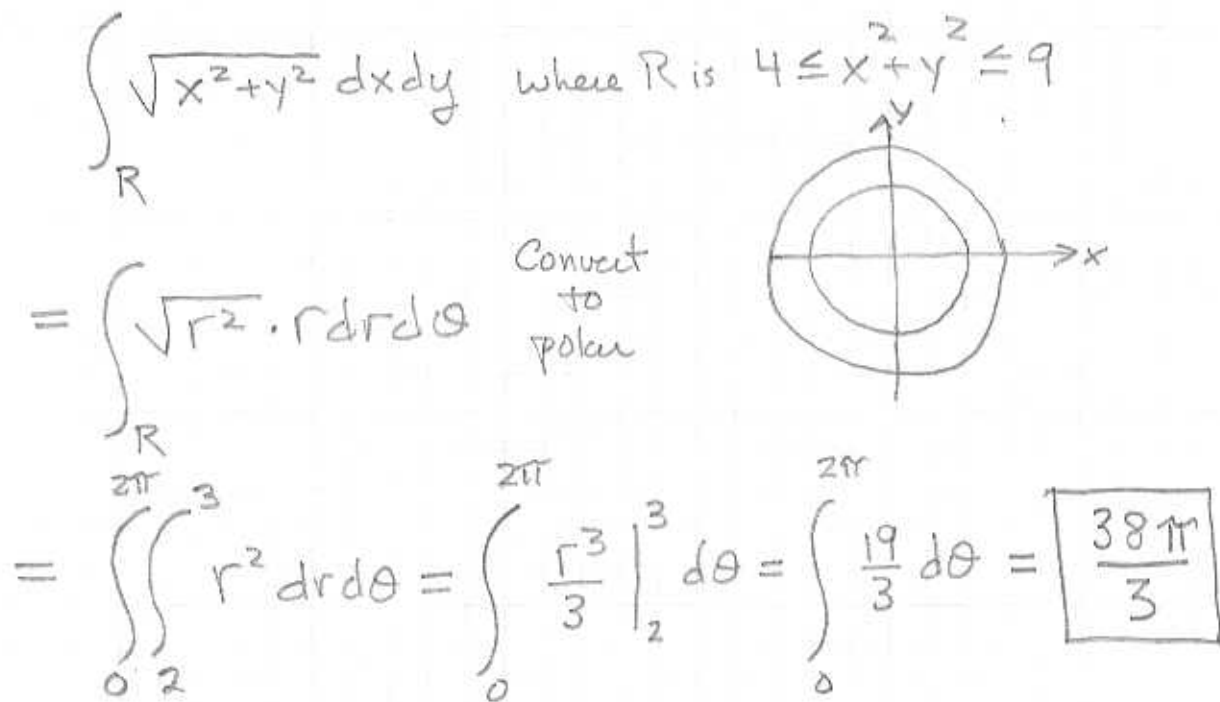 ∫_R √(x²+y²) dxdy where R is 4 ≤ x²+y² ≤ 9
y
x
= ∫_R √(r²) · r dr dθ Convert
to
polar
= ∫_0^{2π} ∫_2^3 r² dr dθ = ∫_0^{2π} r³/3 |_2^3 dθ = ∫_0^{2π} 19/3 dθ = 38π/3